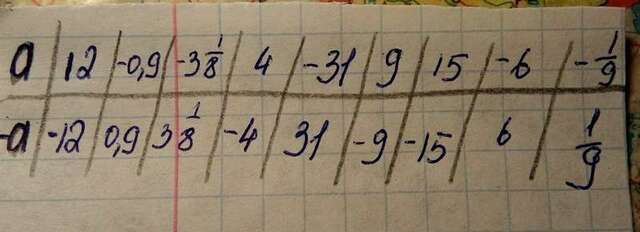 a 12 -0,9 -3 1/8 4 -31 9 15 -6 -1/9
-a -12 0,9 3 1/8 -4 31 -9 -15 6 1/9